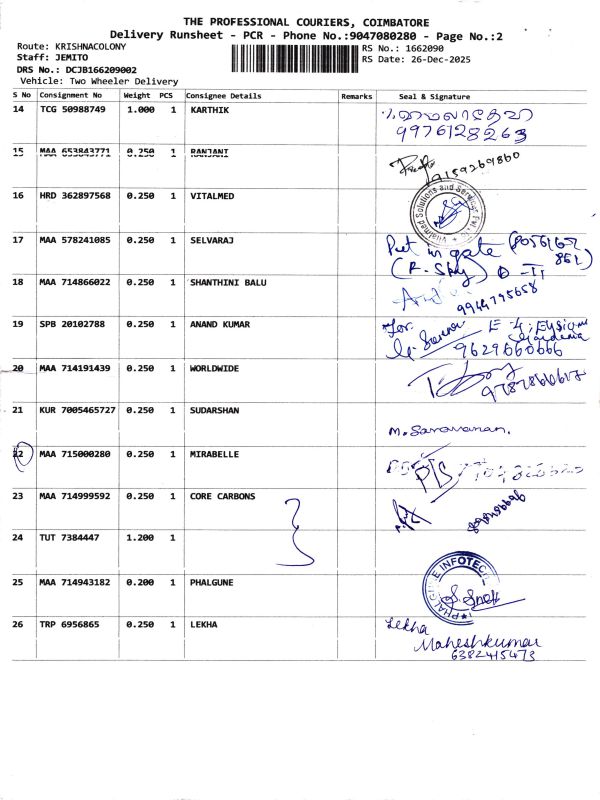 THE PROFESSIONAL COURIERS, COIMBATORE
Delivery Runsheet - PCR - Phone No.:9047080280 - Page No.:2
Route: KRISHNACOLONY RS No.: 1662090
Staff: JEMITO RS Date: 26-Dec-2025
DRS No.: DCJB166209002
Vehicle: Two Wheeler Delivery
S No Consignment No Weight PCS Consignee Details Remarks Seal & Signature
14 TCG 50988749 1.000 1 KARTHIK
9976128263
15 MAA 653843771 0.250 1 RANJANI
9159269860
16 HRD 362897568 0.250 1 VITALMED
Vitalmed Solutions and Services Pvt Ltd
17 MAA 578241085 0.250 1 SELVARAJ
Put in gate
18 MAA 714866022 0.250 1 SHANTHINI BALU
9944795658
19 SPB 20102788 0.250 1 ANAND KUMAR
for E-4, Elysium
Gardenia
9629660666
20 MAA 714191439 0.250 1 WORLDWIDE
21 KUR 7005465727 0.250 1 SUDARSHAN
M. Saravanan.
22 MAA 715000280 0.250 1 MIRABELLE
23 MAA 714999592 0.250 1 CORE CARBONS
24 TUT 7384447 1.200 1
25 MAA 714943182 0.200 1 PHALGUNE
PHALGUNE INFOTECH
26 TRP 6956865 0.250 1 LEKHA
Lekha
Maheshkumar
6382415473